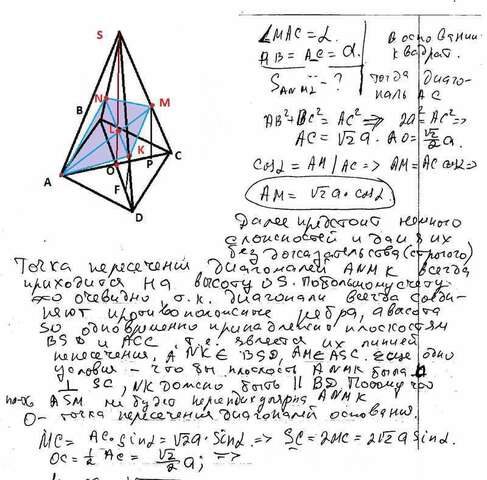 S
N
M
B
L
K
A
O
P
C
F
D
∠MAC = α.
AB = AC = a.
S ANMK - ?
в основании
квадрат.
тогда диаго-
наль AC
AB²+BC² = AC² => 2a² = AC² =>
AC = √2 a. AO = √2/2 a.
cosα = AM/AC => AM = AC cosα =>
AM = √2 a · cosα.
Далее предстоит немного
сложностей и дам их
без доказательства (строгого)
Точка пересечений диагоналей ANMK всегда
приходится на высоту OS. По большому счету
это очевидно, т.к. диагонали всегда соеди-
няют противоположные ребра, а высота
SO одновременно принадлежит плоскостям
BSD и ACC, т.е. является их линией
пересечения, а NK ∈ BSD, AM ∈ ASC. Еще одно
условие - что бы плоскость ANMK была
⊥ SC, NK должно быть || BD. Потому что
ASM не будет перпендикулярна ANMK
O - точка пересечения диагоналей основания.
MC = AC · sinα = √2 a · sinα. => SC = 2MC = 2√2 a sinα.
OC = 1/2 AC = √2/2 a; =>